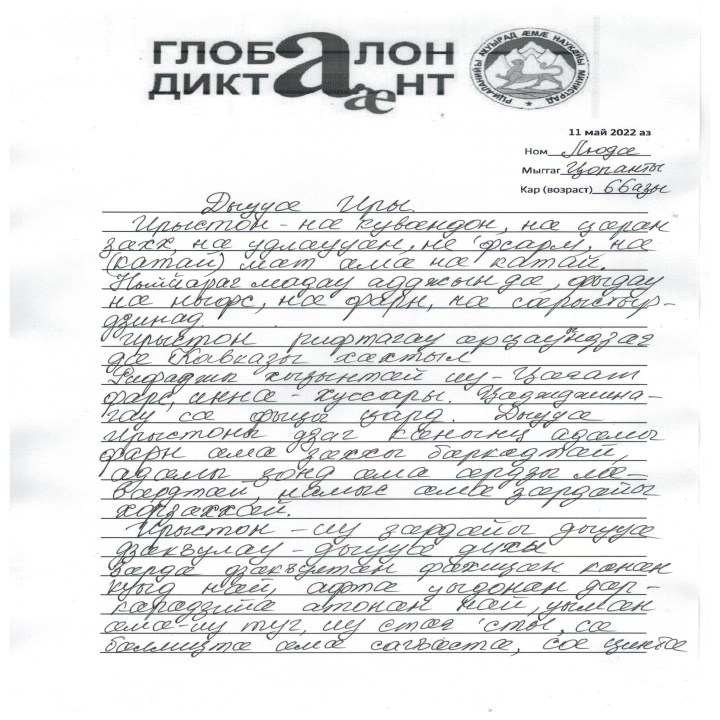 ГЛОБАЛОН
ДИКТАæНТ
РЦИ-АЛАНИЙЫ АХУЫРАД ÆМÆ НАУКÆЙЫ МИНИСТРАД
11 май 2022 аз
Ном Люда
Мыггаг Цопанты
Кар (возраст) 66азы
Дыууæ Иры.
Ирыстон - нæ кувæндон, нæ цæрæн
зæхх, нæ удлæууæн, не 'фсарм, нæ
(катай) мат æмæ нæ катай.
Ныййарæг мадау адджын дæ, фыдау
нæ ныфс, нæ фарн, нæ сæрыстыр-
дзинад.
Ирыстон рифтагау æрцауындзæг
дæ Кавказы хæхтыл
Рифæджы хызынтæй иу - Цæгат
фарс, иннæ - хуссары. Цæджджина-
гау сæ фыцы цард. Дыууæ
Ирыстоны дзаг кæнынц адæмы
фарн æмæ зæххы бæркадтæй,
адæмы зонд æмæ æрдзы лæ-
вæрдтæй, намыс æмæ зæрдæйы
хорзæххæй.
Ирыстон - иу зæрдæйы дыууæ
дзæкъулау - дыууæ дихы
Зæрдæ дзæкъултæн фæхицæн кæнæн
куыд нæй, афтæ уыдонæн дæр -
кæрæдзийæ атонæн нæй, уымæн
æмæ - иу туг, иу стæг 'сты, сæ
бæллицтæ æмæ сагъæстæ, сæ цинтæ